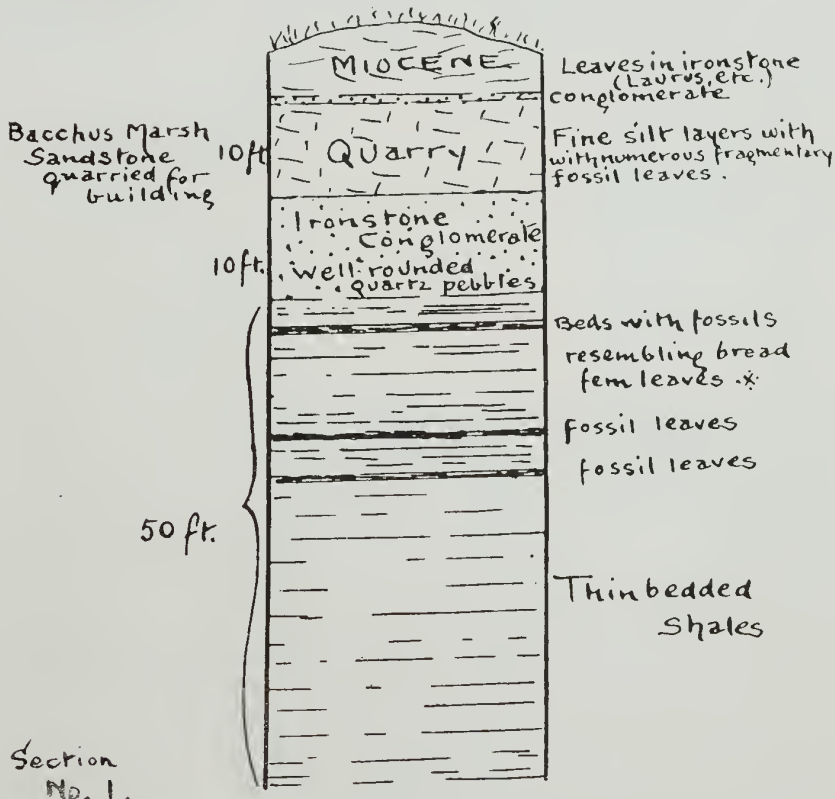 MIOCENE
Leaves in ironstone
(Laurus, etc.)
conglomerate
Bacchus Marsh
Sandstone
quarried for
building
10ft
Quarry
Fine silt layers with
with numerous fragmentary
fossil leaves.
10ft.
Ironstone
Conglomerate
Well-rounded
quartz pebbles
Beds with fossils
resembling bread
fern leaves.x
fossil leaves
fossil leaves
50 ft.
Thin bedded
Shales
Section
No. 1.